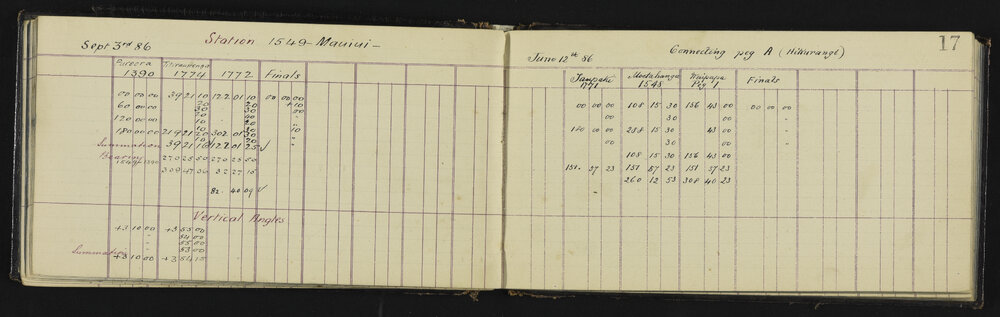 Sept 3rd 86 Station 1549 - Mauiui -
Pureora Titiraupenga
1390 1774 1772 Finals
00 00 00 39 21 10 122 01 10 00 00 00
60 00 00
120 00 00
180 00 00 219 21 20 302 01 30
Summation 39 21 10 122 01 25 ✓
Bearing
1549 1390 270 25 50 270 25 50
309 47 00 32 27 15
82. 40 09 ✓
Vertical Angles
+3 10 00 +3 55 00
" 54 00
" 55 00
" 53 00
Summation +3 10 00 +3 54 15
17
June 12th 86 Connecting peg A (Hikurangi)
Taupaki Moetahanga Waipapa
1771 1545 Peg 1 Finals
00 00 00 108 15 30 156 43 00 00 00 00
00 30 00 "
180 00 00 288 15 30 43 00 "
00 30 00 "
108 15 30 156 43 00
151. 57 23 151 57 23 151 57 23
260 12 53 308 40 23